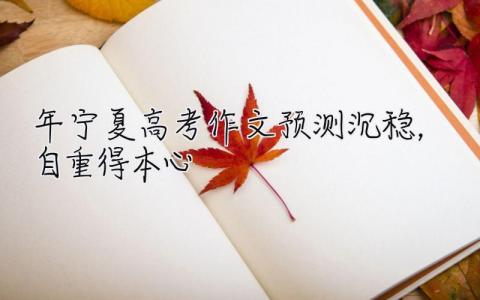 年宁夏高考作文预测沉稳,
自重得本心